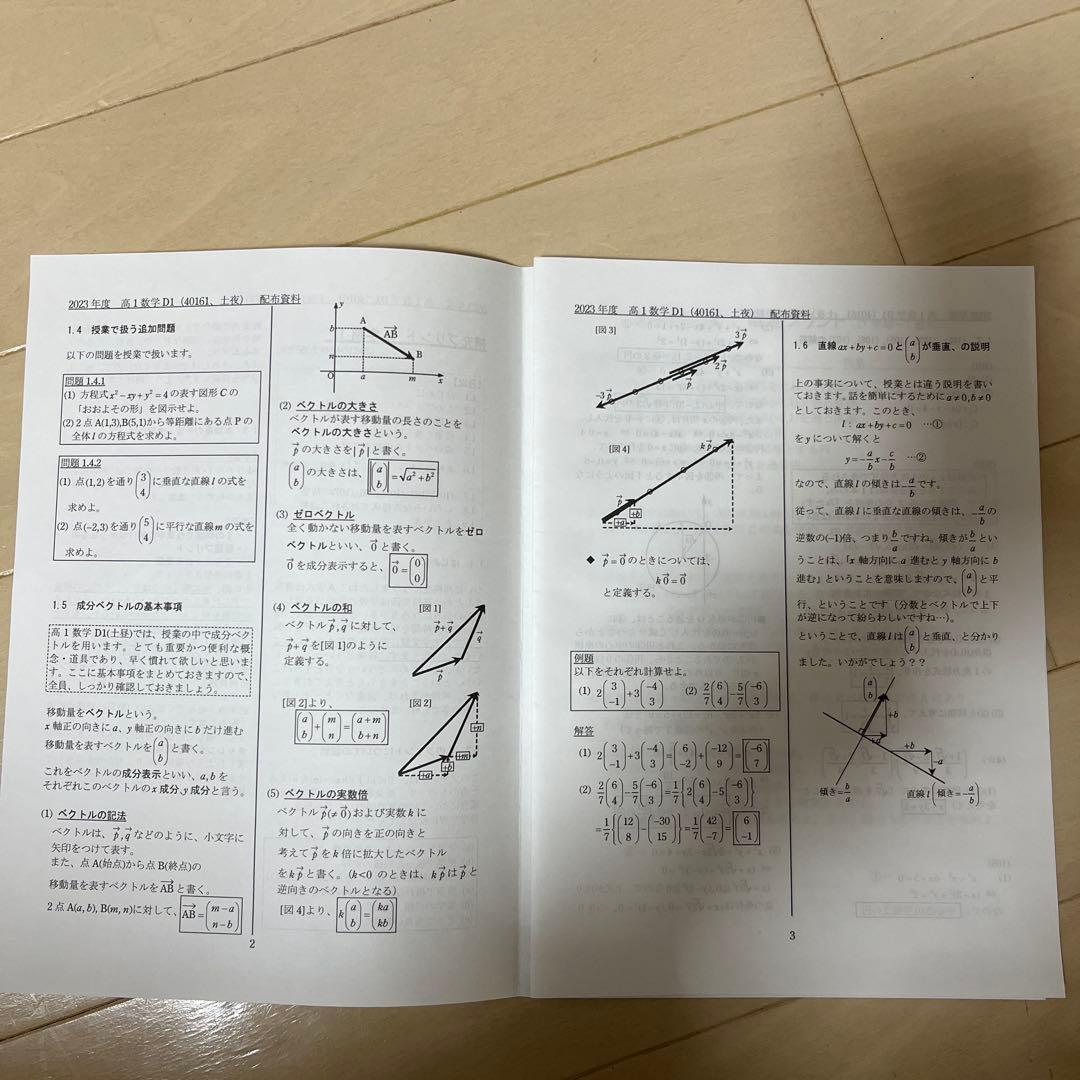 2023年度 高1数学D1（40161、土夜） 配布資料
1.4 授業で扱う追加問題
以下の問題を授業で扱います。
問題 1.4.1
(1) 方程式x²−xy+y²=4の表す図形Cの
「おおよその形」を図示せよ。
(2) 2点A(1,3),B(5,1)から等距離にある点Pの
全体lの方程式を求めよ。
問題 1.4.2
(1) 点(1,2)を通り(3 4)に垂直な直線lの式を
求めよ。
(2) 点(−2,3)を通り(5 4)に平行な直線mの式を
求めよ。
1.5 成分ベクトルの基本事項
高1数学D1(土昼)では、授業の中で成分ベク
トルを用います。とても重要かつ便利な概
念・道具であり、早く慣れて欲しいと思いま
す。ここに基本事項をまとめておきますので、
全員、しっかり確認しておきましょう。
移動量をベクトルという。
x軸正の向きにa、y軸正の向きにbだけ進む
移動量を表すベクトルを(a b)と書く。
これをベクトルの成分表示といい、a,bを
それぞれこのベクトルのx成分、y成分と言う。
(1) ベクトルの記法
ベクトルは、p⃗,q⃗などのように、小文字に
矢印をつけて表す。
また、点A(始点)から点B(終点)の
移動量を表すベクトルをAB⃗と書く。
2点A(a, b), B(m, n)に対して、AB⃗=(m−a n−b)
y
A
b
AB⃗
n
B
O
a
m
x
(2) ベクトルの大きさ
ベクトルが表す移動量の長さのことを
ベクトルの大きさという。
p⃗の大きさを|p⃗|と書く。
(a b)の大きさは、|(a b)|=√(a²+b²)
(3) ゼロベクトル
全く動かない移動量を表すベクトルをゼロ
ベクトルといい、0⃗と書く。
0⃗を成分表示すると、0⃗=(0 0)
(4) ベクトルの和
[図1]
ベクトルp⃗,q⃗に対して、
p⃗+q⃗を[図1]のように
定義する。
p⃗+q⃗
q⃗
p⃗
[図2]より、
[図2]
(a b)+(m n)=(a+m b+n)
+n
+m
+b
+a
(5) ベクトルの実数倍
ベクトルp⃗(≠0⃗)および実数kに
対して、p⃗の向きを正の向きと
考えてp⃗をk倍に拡大したベクトル
をkp⃗と書く。(k<0のときは、kp⃗はp⃗と
逆向きのベクトルとなる)
[図4]より、k(a b)=(ka kb)
2
2023年度 高1数学D1（40161、土夜） 配布資料
[図3]
3p⃗
2p⃗
p⃗
−3p⃗
[図4]
kp⃗
p⃗
+b
+a
◆ p⃗=0⃗のときについては、
k0⃗=0⃗
と定義する。
例題
以下をそれぞれ計算せよ。
(1) 2(3 −1)+3(−4 3) (2) 2/7(6 4)−5/7(−6 3)
解答
(1) 2(3 −1)+3(−4 3)=(6 −2)+(−12 9)=(−6 7)
(2) 2/7(6 4)−5/7(−6 3)=1/7{2(6 4)−5(−6 3)}
=1/7{(12 8)−(−30 15)}=1/7(42 −7)=(6 −1)
1.6 直線ax+by+c=0と(a b)が垂直、の説明
上の事実について、授業とは違う説明を書い
ておきます。話を簡単にするためにa≠0,b≠0
としておきます。このとき、
l：ax+by+c=0 …①
をyについて解くと
y=−a/b x−c/b …②
なので、直線lの傾きは−a/bです。
従って、直線lに垂直な直線の傾きは、−a/bの
逆数の(−1)倍、つまりb/aですね。傾きがb/aとい
うことは、「x軸方向にa進むとy軸方向にb
進む」ということを意味しますので、(a b)と平
行、ということです（分数とベクトルで上下
が逆になって紛らわしいですね…）。
ということで、直線lは(a b)と垂直、と分かり
ました。いかがでしょう？？
(a b)
+b
+a
+b
−a
傾き=b/a
直線l(傾き=−a/b)
3